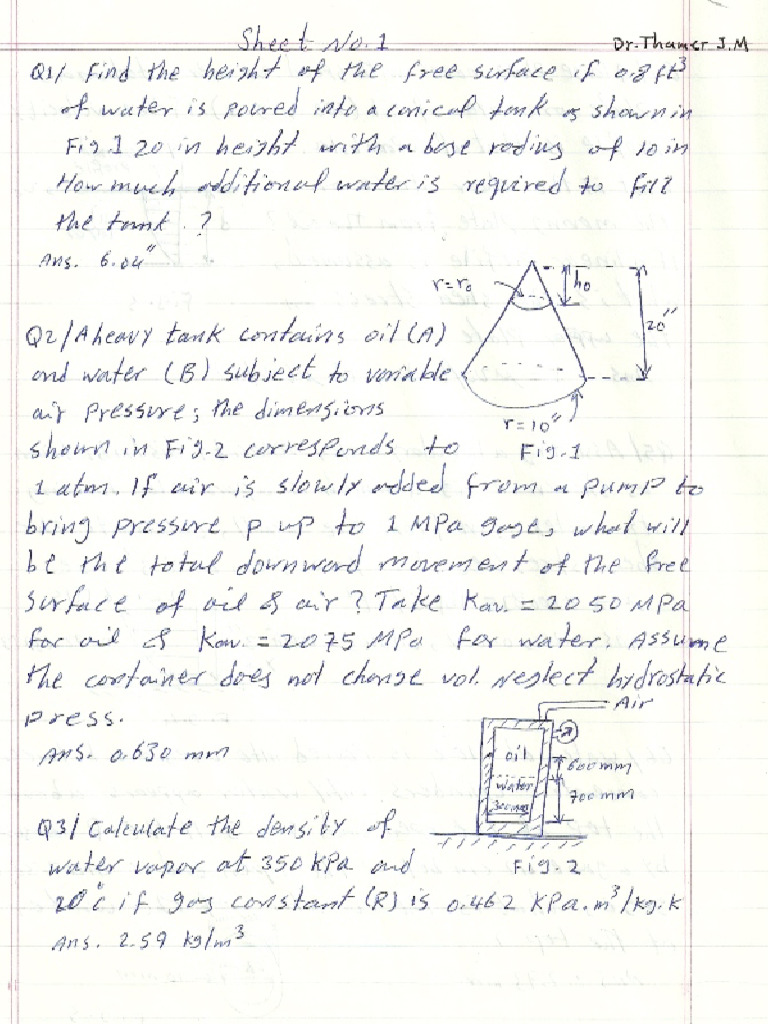 Sheet No.1
Dr.Thamer J.M
Q1/ Find the height of the free surface if 0.8 ft³
of water is poured into a conical tank as shown in
Fig.1 20 in height with a base radius of 10 in
How much additional water is required to fill
the tank.?
Ans. 6.04"
r=r₀
h₀
20"
r=10"
Fig.1
Q2/ A heavy tank contains oil (A)
and water (B) subject to variable
air pressure; the dimensions
shown in Fig.2 corresponds to
1 atm. If air is slowly added from a pump to
bring pressure p up to 1 MPa gage, what will
be the total downward movement of the free
surface of oil & air? Take Kav. = 2050 MPa
for oil & Kav. = 2075 MPa for water. Assume
the container does not change vol. Neglect hydrostatic
press.
Ans. 0.630 mm
Air
oil
600mm
water
700mm
300mm
Fig.2
Q3/ Calculate the density of
water vapor at 350 kPa and
20°c if gas constant (R) is 0.462 KPa.m³/kg.k
Ans. 2.59 kg/m³